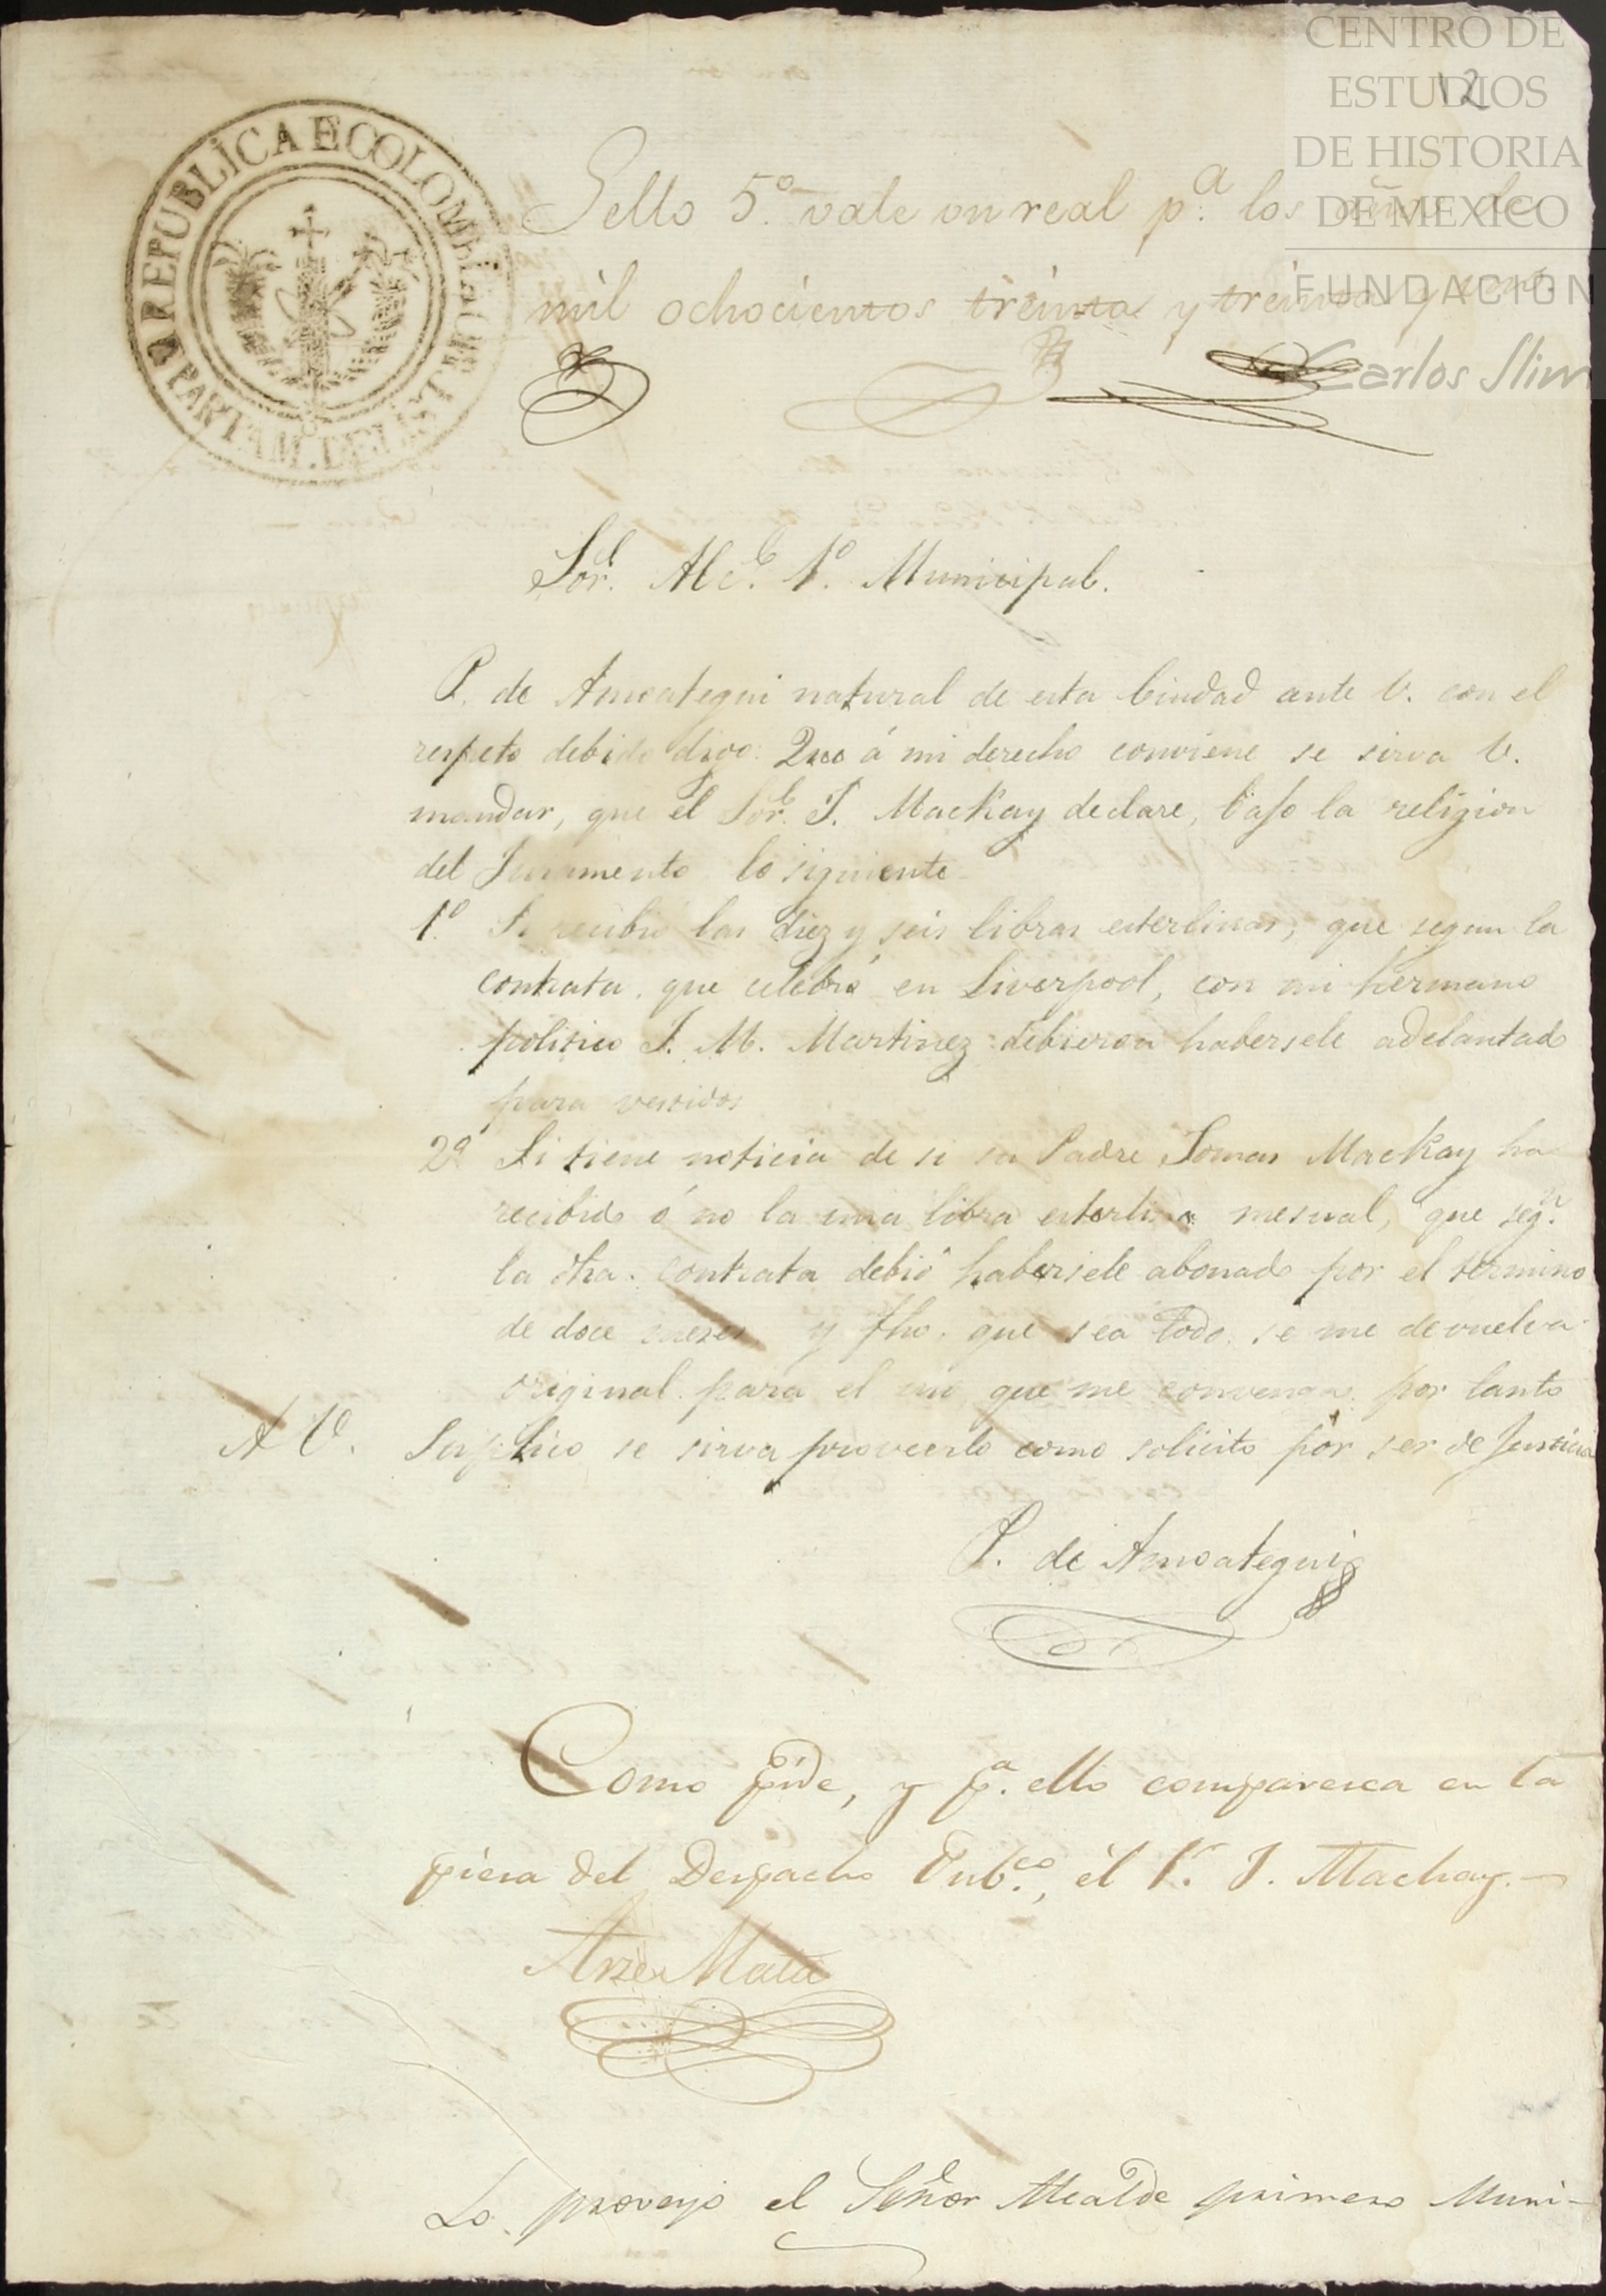 CENTRO DE
ESTUDIOS
DE HISTORIA
DE MEXICO
FUNDACION
Carlos Slim
12
REPUBLICA D COLOMBIA
DEPARTAM. DEL
Sello 5º. vale un real pª. los años de
mil ochocientos treinta y treinta y uno.
Sor. Alce. 1º. Municipal.
P. de Amoategui natural de esta Ciudad ante V. con el
respeto debido digo: Que á mi derecho conviene se sirva V.
mandar, que el Sor. J. MacKay declare, bajo la religion
del Juramento lo siguiente
1º. Si recibió las diez y seis libras esterlinas, que segun la
contrata, que celebró en Liverpool, con mi hermano
politico J. M. Martinez debieron habersele adelantado
para vestidos
2º Si tiene noticia de si su Padre Tomas MacKay ha
recibido ó no la una libra esterlina mesual, que segn.
la dha. contrata debió habersele abonado por el termino
de doce meses y fho. que sea todo se me devuelva
original para el uso que me convenga por tanto
A V. Suplico se sirva proveerlo como solicito por ser de Justicia
P. de Amoategui
Como pide, y pª. ello comparesca en la
piesa del Despacho Pubco., él S. J. Mackay.
Arze Mata
Lo proveyó el Señor Alcalde primero Muni-